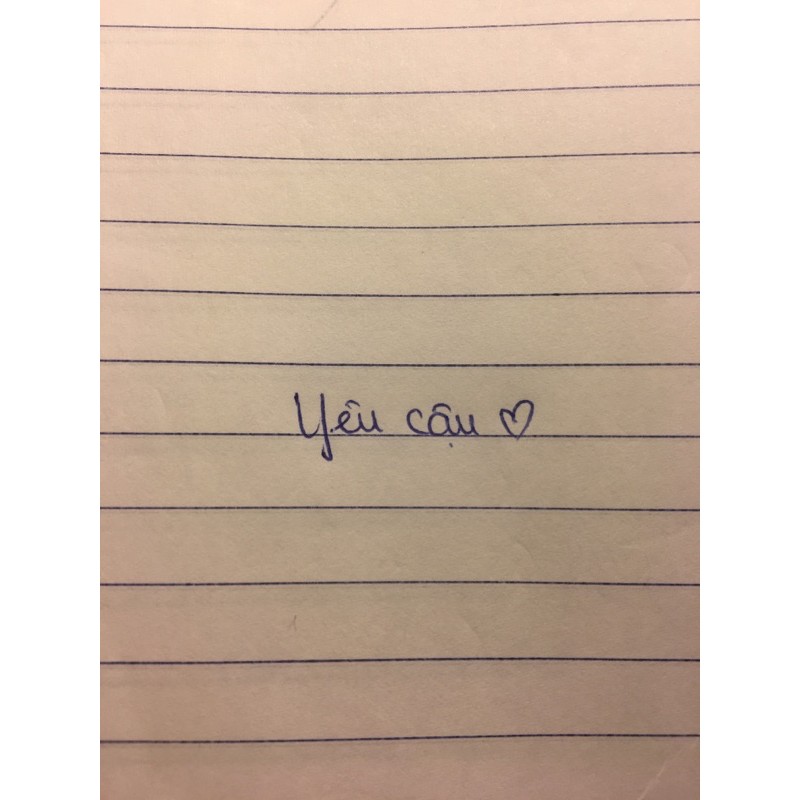 Yêu cậu ♡